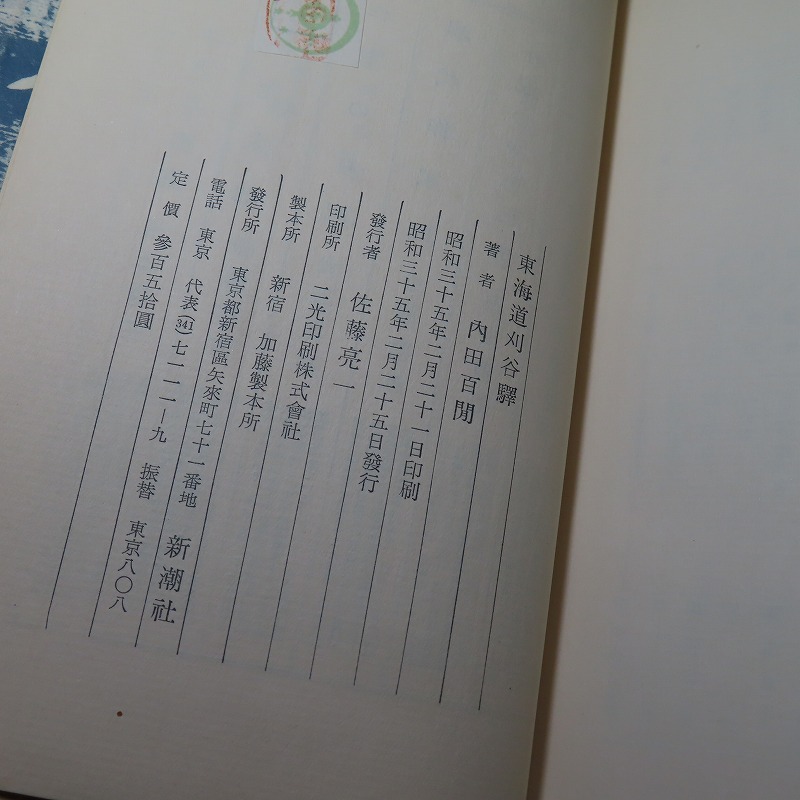 東海道刈谷驛
著者 內田百閒
昭和三十五年二月二十一日印刷
昭和三十五年二月二十五日發行
發行者 佐藤亮一
印刷所 二光印刷株式會社
製本所 新宿 加藤製本所
發行所 東京都新宿區矢來町七十一番地 新潮社
電話 東京 代表(341)七一一一―九 振替 東京八〇八
定價 參百五拾圓